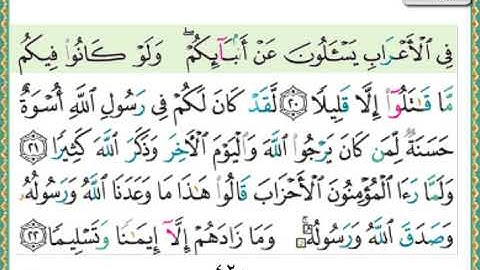 فِى ٱلْأَعْرَابِ يَسْـَٔلُونَ عَنْ أَنۢبَآئِكُمْ ۖ وَلَوْ كَانُوا۟ فِيكُم
مَّا قَـٰتَلُوٓا۟ إِلَّا قَلِيلًا ﴿٢٠﴾ لَّقَدْ كَانَ لَكُمْ فِى رَسُولِ ٱللَّهِ أُسْوَةٌ
حَسَنَةٌ لِّمَن كَانَ يَرْجُوا۟ ٱللَّهَ وَٱلْيَوْمَ ٱلْـَٔاخِرَ وَذَكَرَ ٱللَّهَ كَثِيرًا ﴿٢١﴾
وَلَمَّا رَءَا ٱلْمُؤْمِنُونَ ٱلْأَحْزَابَ قَالُوا۟ هَـٰذَا مَا وَعَدَنَا ٱللَّهُ وَرَسُولُهُۥ
وَصَدَقَ ٱللَّهُ وَرَسُولُهُۥ ۚ وَمَا زَادَهُمْ إِلَّآ إِيمَـٰنًا وَتَسْلِيمًا ﴿٢٢﴾
٤٢٠